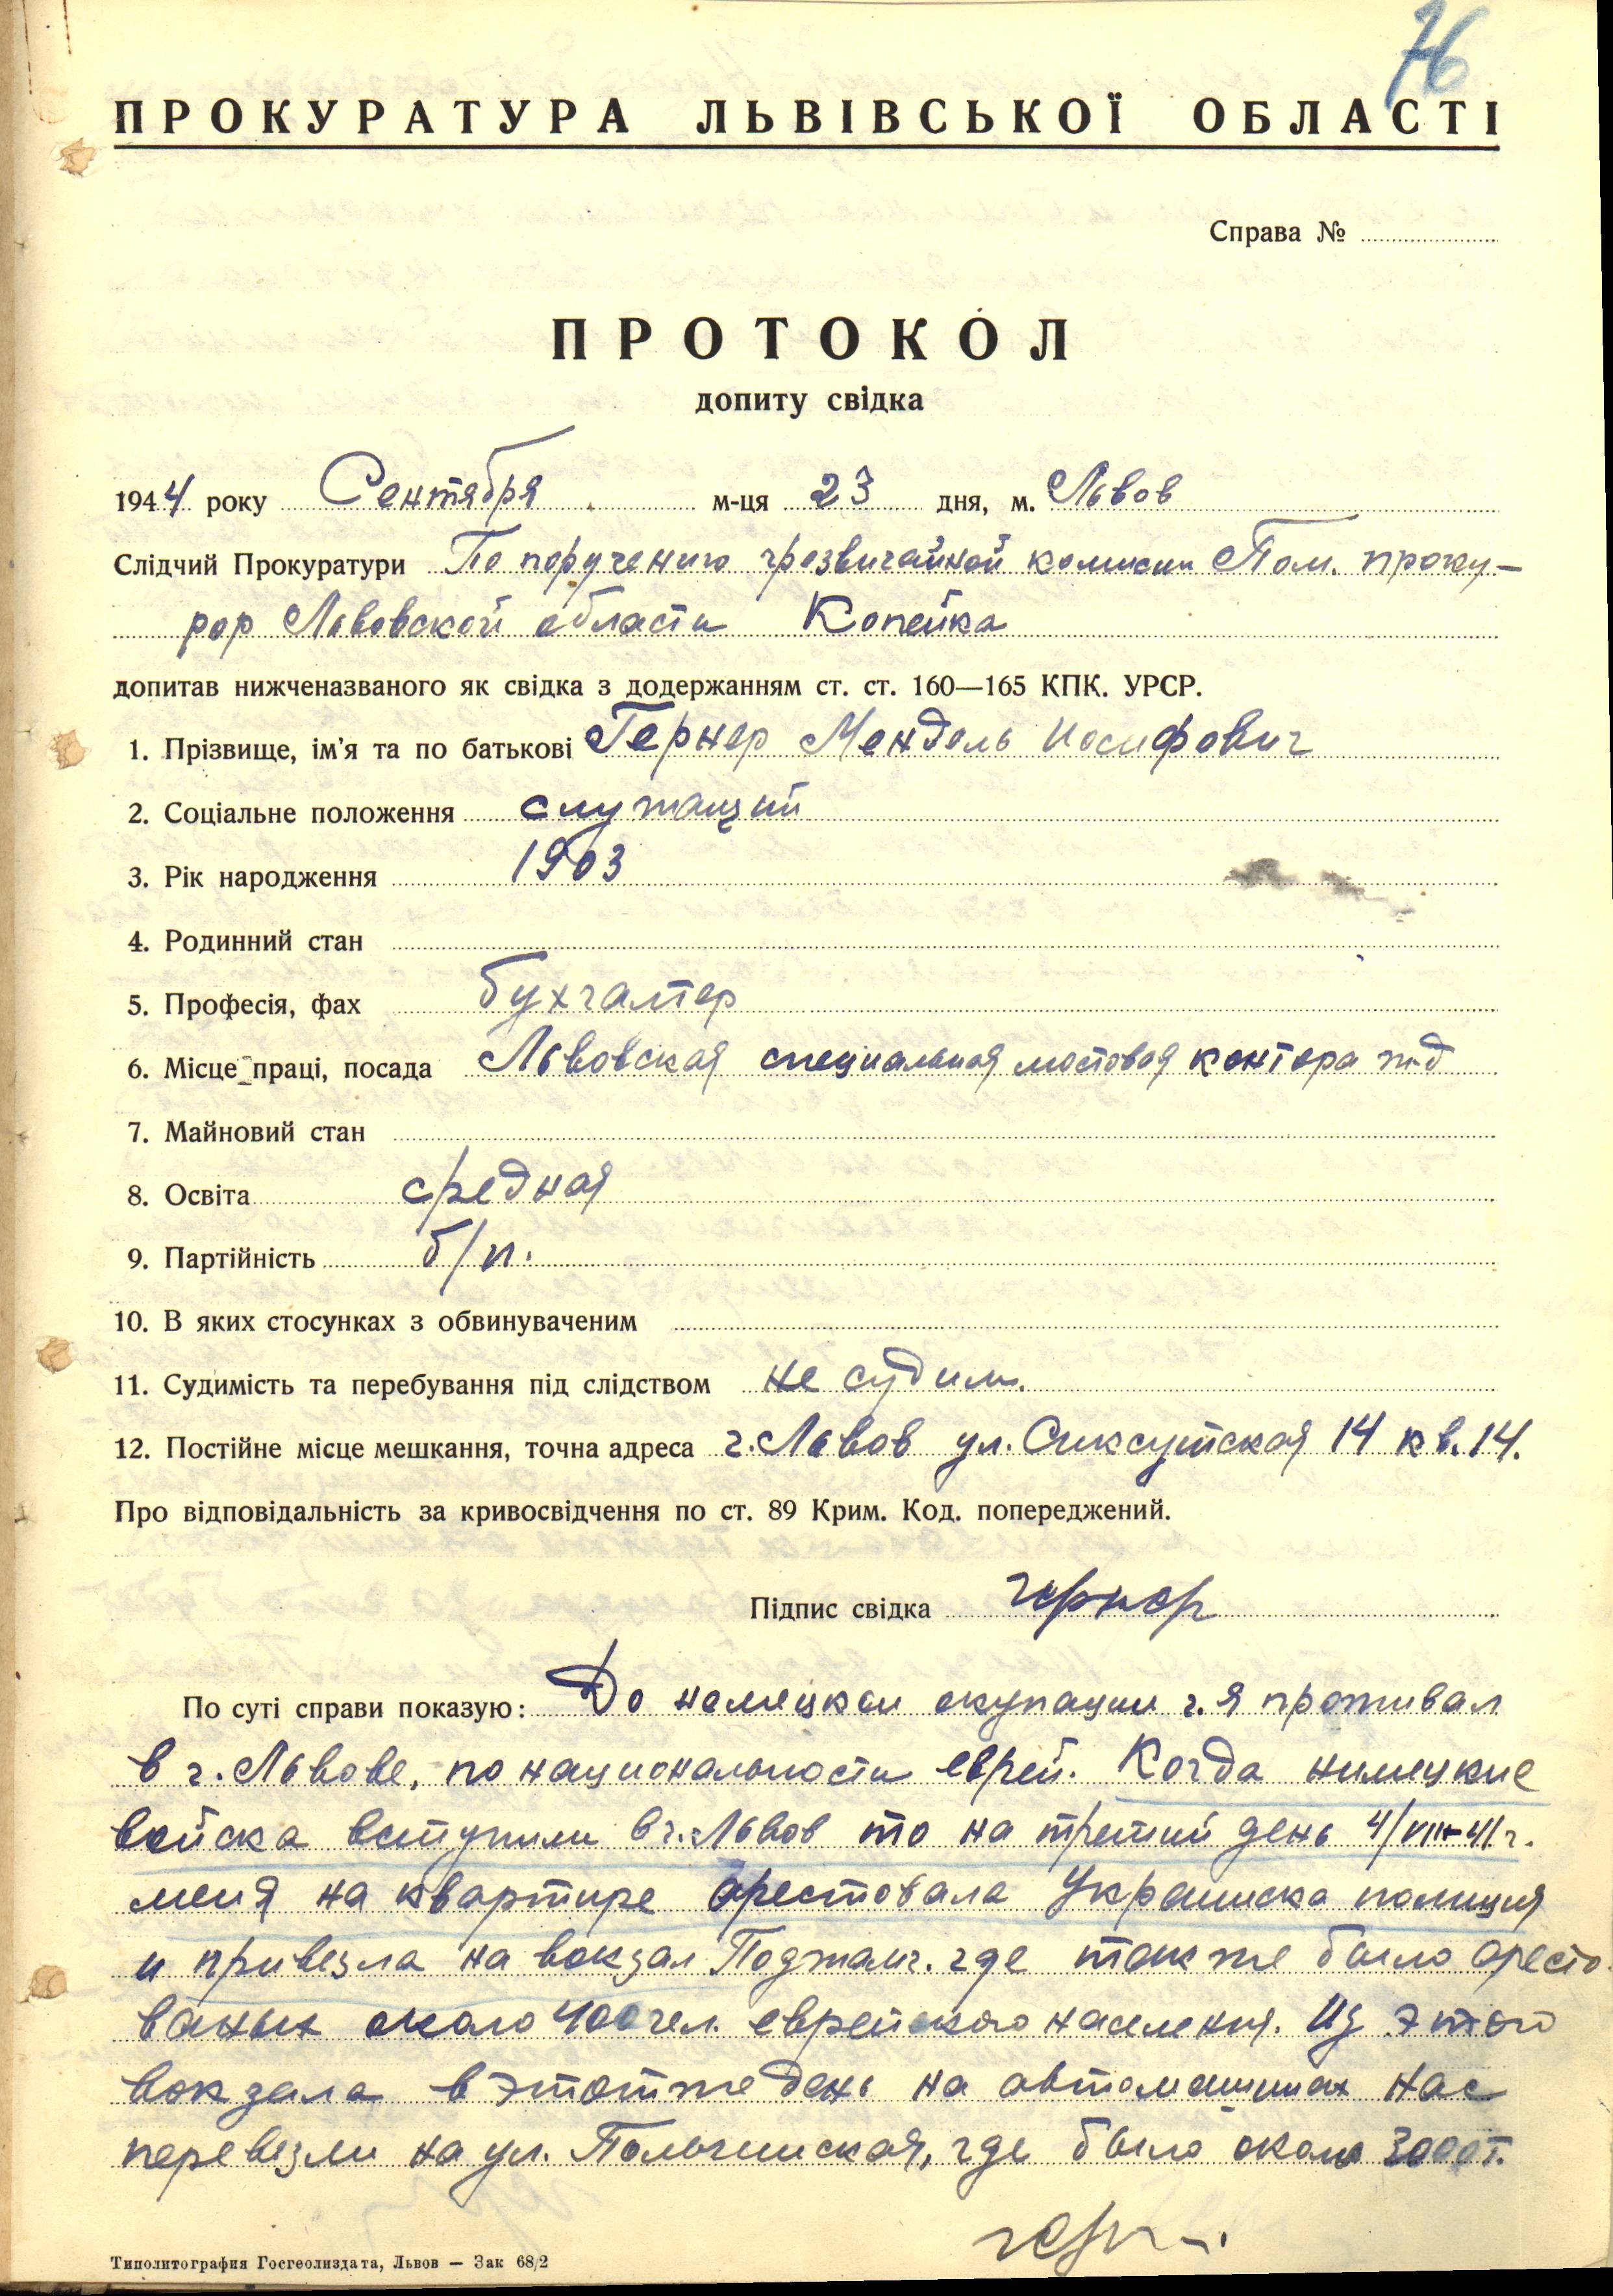 76
ПРОКУРАТУРА ЛЬВІВСЬКОЇ ОБЛАСТІ
Справа №
ПРОТОКОЛ
допиту свідка
1944 року Сентября м-ця 23 дня, м. Львов
Слідчий Прокуратури По поручению чрезвичайной комисии Пом. проку-
рор Львовской области Копейка
допитав нижченазваного як свідка з додержанням ст. ст. 160—165 КПК. УРСР.
1. Прізвище, ім'я та по батькові Гернер Мендель Иосифович
2. Соціальне положення служащий
3. Рік народження 1903
4. Родинний стан
5. Професія, фах бухгалтер
6. Місце праці, посада Львовская специальная мостовая контора ж-д
7. Майновий стан
8. Освіта средная
9. Партійність б/п.
10. В яких стосунках з обвинуваченим
11. Судимість та перебування під слідством не судим.
12. Постійне місце мешкання, точна адреса г. Львов ул. Сикстутская 14 кв. 14.
Про відповідальність за кривосвідчення по ст. 89 Крим. Код. попереджений.
Підпис свідка Гернер
По суті справи показую: До немецкои окупации г. я проживал
в г. Львове, по национальности еврей. Когда нимецкие
войска вступили в г. Львов то на третий день 4/VII-41 г.
меня на квартире арестовала Украинска полиция
и привезла на вокзал Поджамч. где также было аресто-
ваных около 400 чел. еврейского населения. Из этого
вокзала в этотже день на автомашинах нас
перевезли на ул. Полчинская, где было около 3000 т.
Типолитография Госгеолиздата, Львов — Зак 68/2